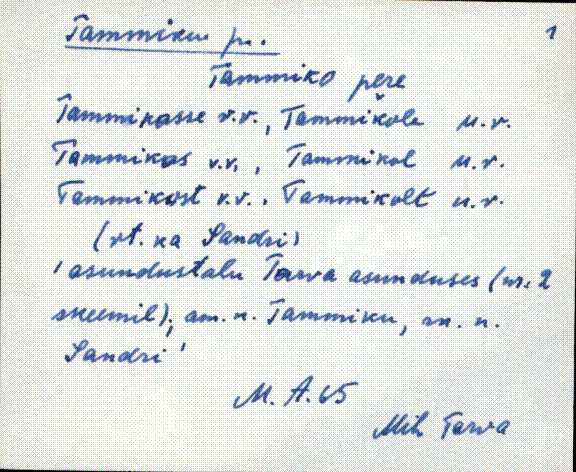 Tammiku pr. 1
Tammiko pere
Tammikosse v.v., Tammikole u.v.
Tammikos v.v., Tammikol u.v.
Tammikost v.v., Tammikolt u.v.
(vt. ka Sandri)
'asundustalu Tarva asunduses (nr. 2
skeemil); am. n. Tammiku, rn. n.
Sandri'
M. A. 65
Mih Tarva